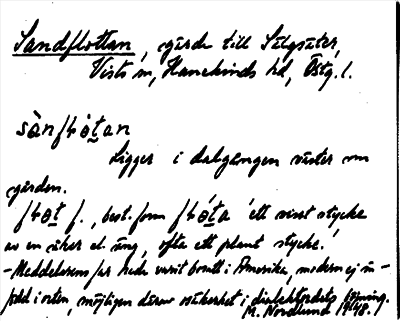 Sandflottan, gärde till Sälgsäter,
Vists sn, Hanekinds hd, Östg. l.
sànfɫo̱tan
Ligger i dalgången väster om
gården.
fɫo̱t f., best. form fɫo̱ta 'ett visst stycke
av en åker el. äng, ofta ett plant stycke.'
- Meddelarens far hade varit bonde i Amerika, modern ej in-
född i orten, möjligen därav osäkerhet i dialektordets
M. Nordlund 1948.